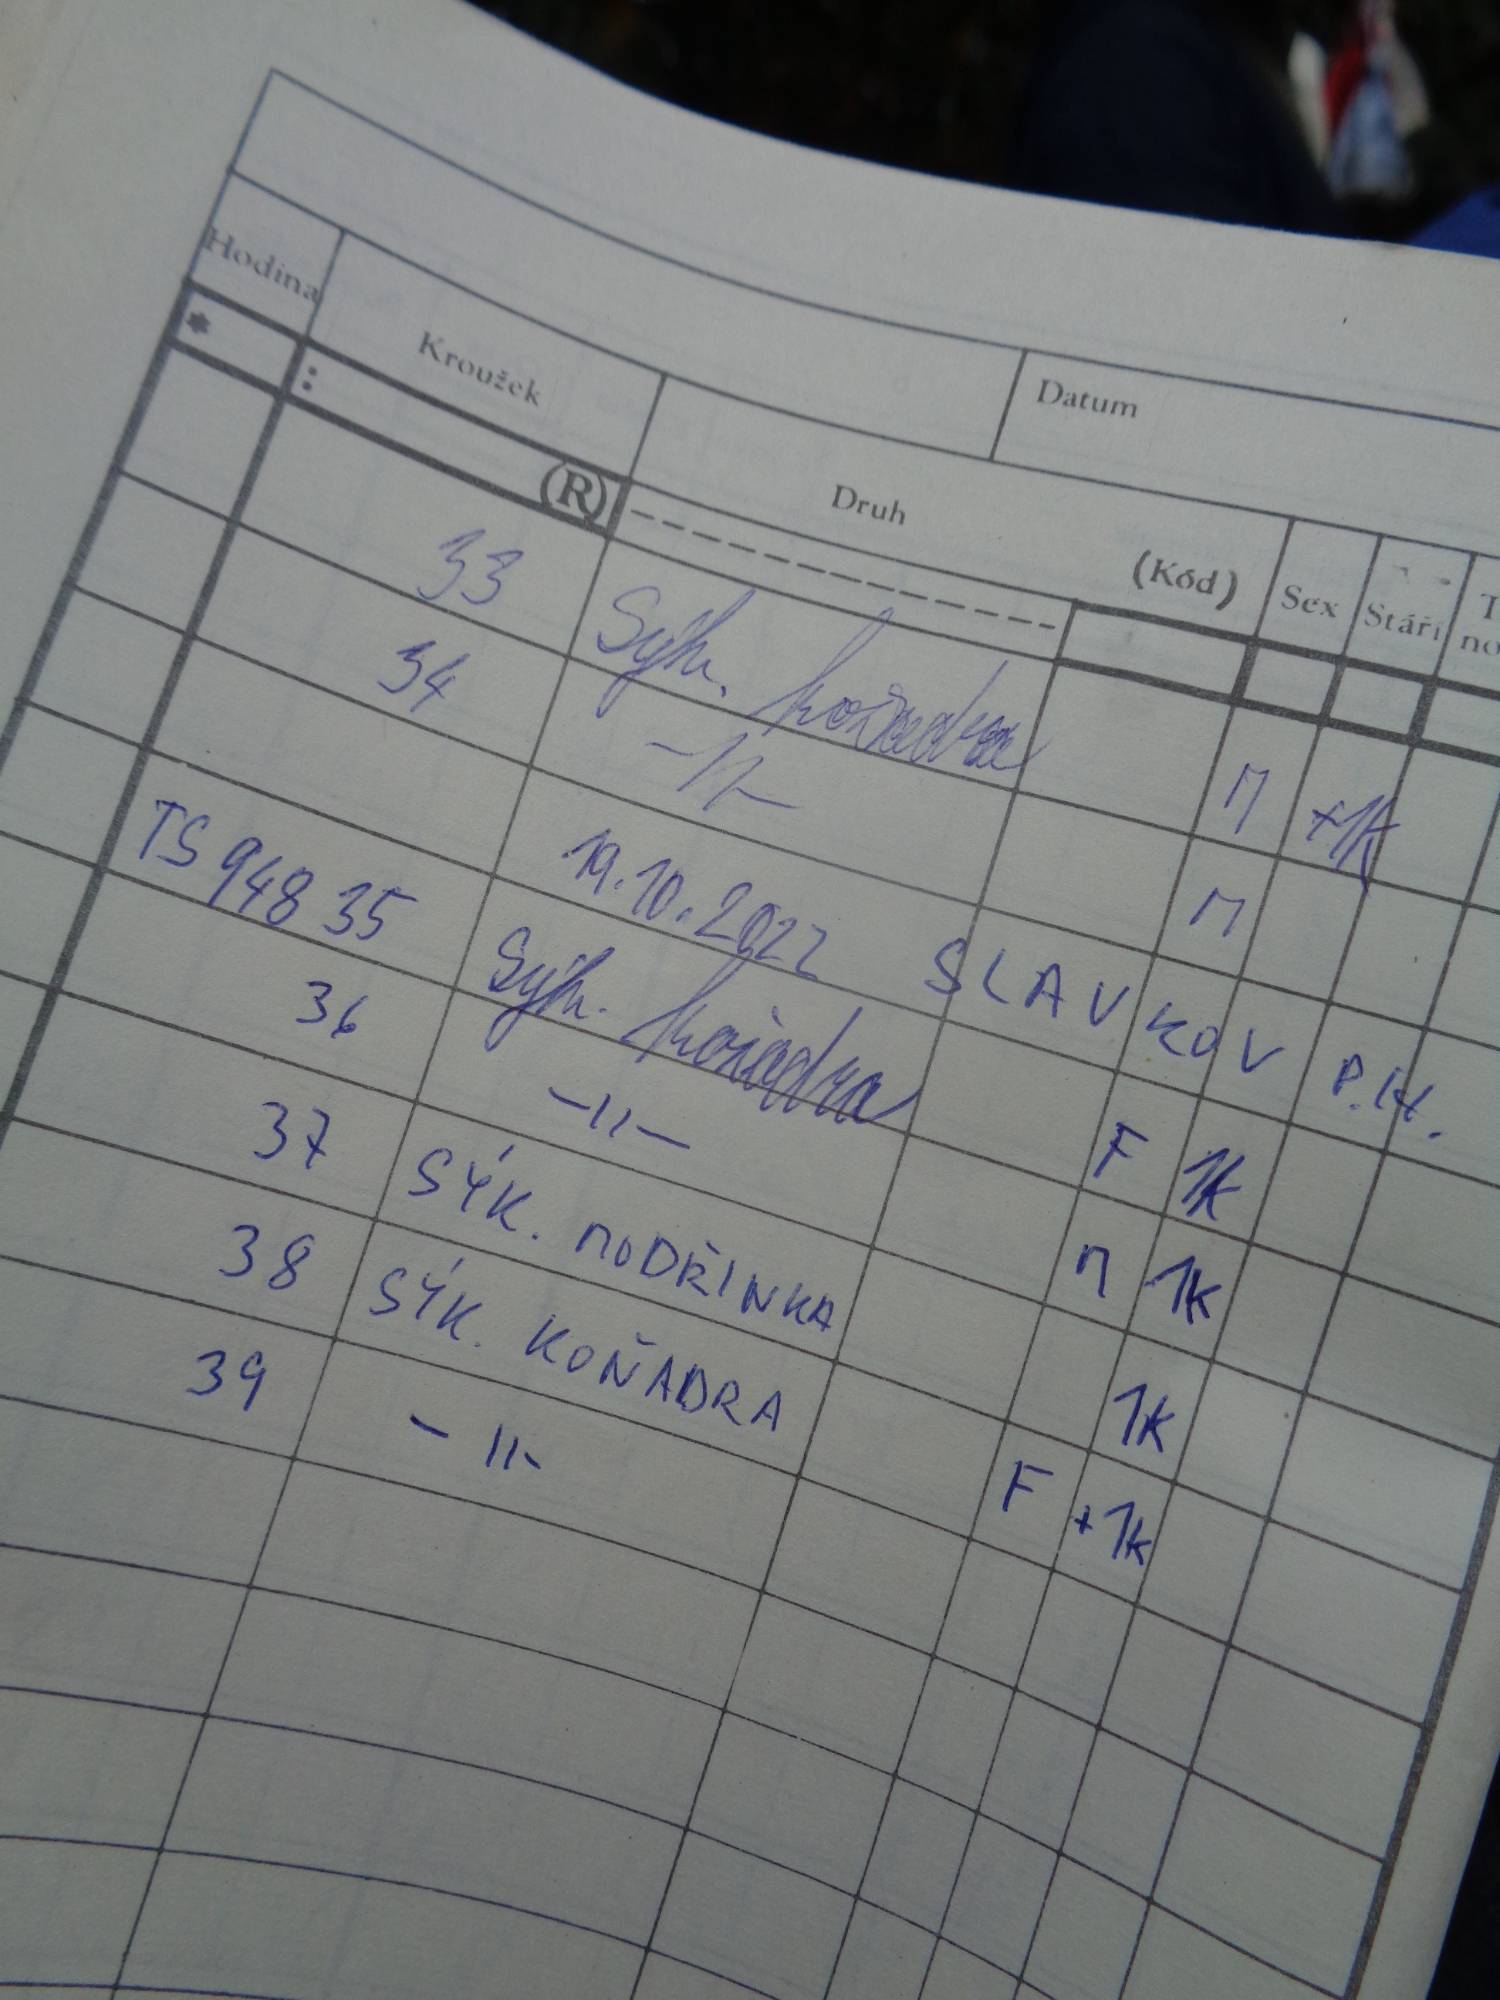 Datum
Hodina Kroužek Druh (Kód) Sex Stáří
* : (R)
33 Sýk. koňadra M +1K
34 -11- M
19.10.2022 SLAVKOV P.H.
TS94835 Sýk. koňadra F 1K
36 -11- M 1K
37 SÝK. MODŘINKA 1K
38 SÝK. KOŇADRA F +1K
39 -11-